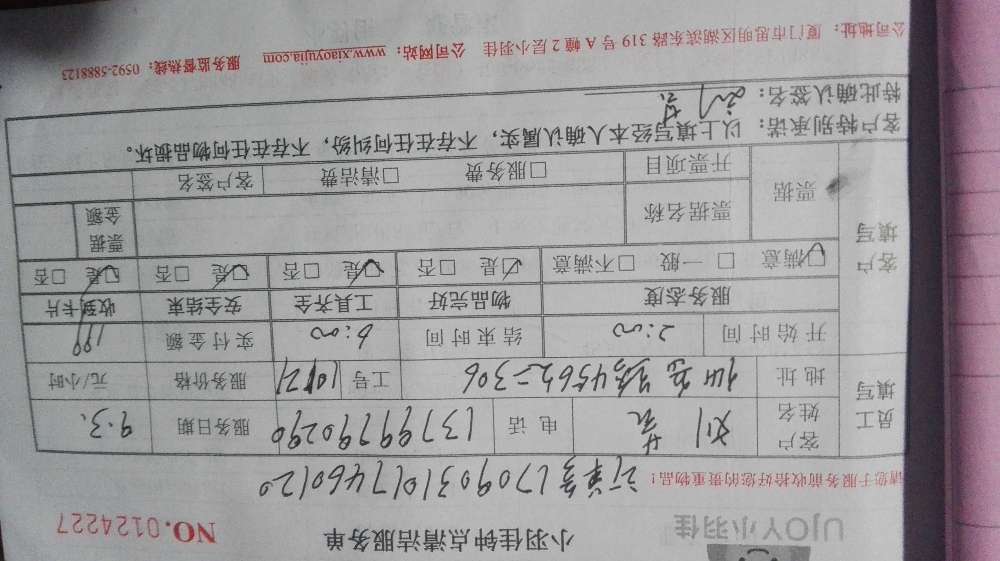 UJOY小羽佳
小羽佳钟点清洁服务单
NO.0124227
请您于服务前收拾好您的贵重物品！
订单号1709031017460120
员工填写
客户姓名 刘 电话 13799790290 服务日期 9.3.
地址 4562=306 工号 服务价格 元/小时
开始时间 2:00 结束时间 6:00 实付金额 199
客户填写
服务态度 物品完好 工具齐全 安全结束 收到卡片
☑满意 □一般 □不满意 ☑是 □否 ☑是 □否 ☑是 □否 ☑是 □否
票据 票据名称 票据金额
开票项目 □服务费 □清洁费 客户签名
客户特别承诺：以上填写经本人确认属实，不存在任何纠纷，不存在任何物品损坏。
特此确认签名：
公司地址：厦门市思明区湖滨东路319号A幢2层小羽佳 公司网站：www.xiaoyujia.com 服务监督热线：0592-5888123